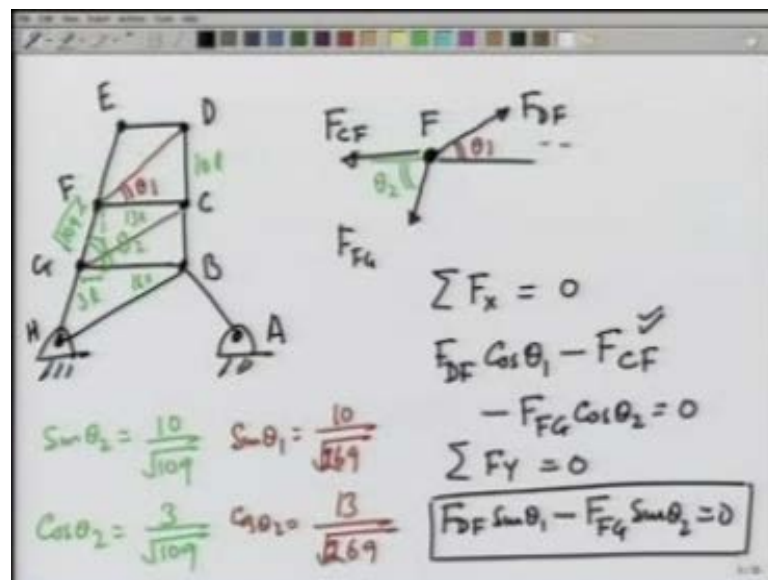 E
D
10k
F
θ1
C
√109
13k
θ2
G
B
3k
H
A
F_CF
F
F_DF
θ1
θ2
F_FG
∑ F_x = 0
F_DF Cosθ1 − F_CF
− F_FG Cosθ2 = 0
∑ F_Y = 0
F_DF Sinθ1 − F_FG Sinθ2 = 0
Sinθ2 = 10/√109
Sinθ1 = 10/√269
Cosθ2 = 3/√109
Cosθ2 = 13/√269